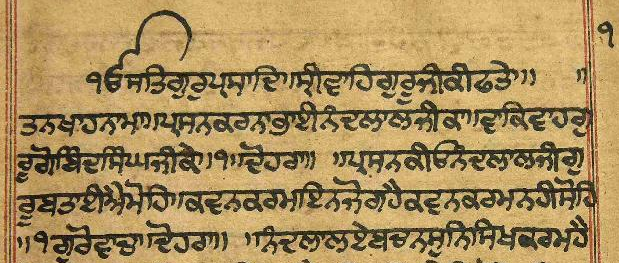 ੧
ੴਸਤਿਗੁਰਪ੍ਰਸਾਦਿ॥ਸ੍ਰੀਵਾਹਿਗੁਰੂਜੀਕੀਫਤੇ॥ ॥
ਤਨਖਾਹਨਾਮਾ॥ਪ੍ਰਸਨਕਰਨਾਭਾਈਨੰਦਲਾਲਜੀਕਾ॥ਵਾਕਿਵਾਹਗੁ
ਰੂਗੋਬਿੰਦਸਿੰਘਜੀਕੇ॥੧॥ਦੋਹਰਾ॥ ॥ਪ੍ਰਸਨਕੀਓਨੰਦਲਾਲਜੀਗੁ
ਰੂਬਤਾਈਐਮੋਹਿ॥ਕਵਨਕਰਮਇਨਜੋਗਹੈਕਵਨਕਰਮਨਹੀਸੋਹਿ
॥੧ਗੁਰੋਵਾਚਾ॥ਦੋਹਰਾ॥ ॥ਨੰਦਲਾਲਏਬਚਨਸੁਨਿਸਿਖਕਰਮਹੈ